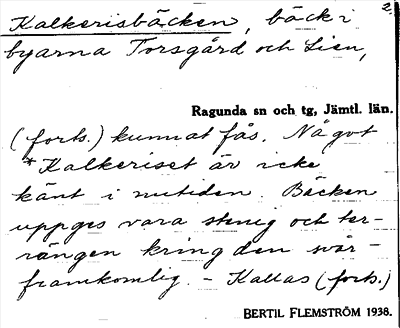 Kalkerisbäcken, bäck i
2.
byarna Torsgård och Lien,
Ragunda sn och tg, Jämtl. län.
(forts.) kunnat fås. Något
*Kalkeriset är icke
känt i nutiden. Bäcken
uppges vara stenig och ter-
rängen kring den svår-
framkomlig. - Kallas (forts.)
BERTIL FLEMSTRÖM 1938.